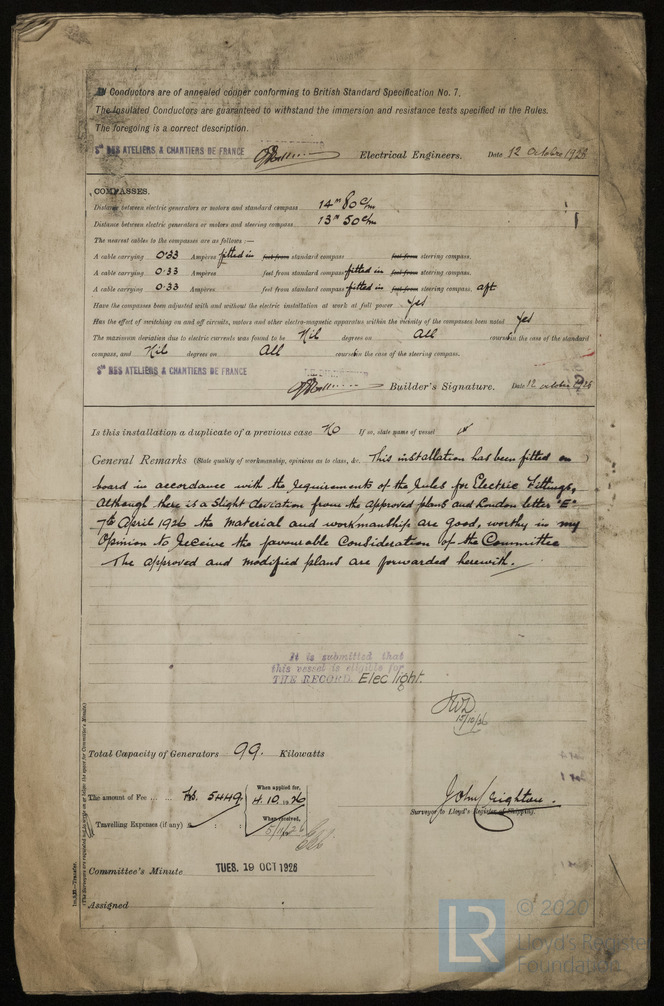 All Conductors are of annealed copper conforming to British Standard Specification No. 7.
The Insulated Conductors are guaranteed to withstand the immersion and resistance tests specified in the Rules.
The foregoing is a correct description.
Sté DES ATELIERS & CHANTIERS DE FRANCE Electrical Engineers. Date 12 October 1926
COMPASSES.
Distance between electric generators or motors and standard compass 14m 80 c/m
Distance between electric generators or motors and steering compass 13m 50 c/m
The nearest cables to the compasses are as follows :—
A cable carrying 0.33 Ampères fitted in feet from standard compass feet from steering compass.
A cable carrying 0.33 Ampères feet from standard compass fitted in feet from steering compass.
A cable carrying 0.33 Ampères feet from standard compass fitted in feet from steering compass. aft
Have the compasses been adjusted with and without the electric installation at work at full power Yes
Has the effect of switching on and off circuits, motors and other electro-magnetic apparatus within the vicinity of the compasses been noted Yes
The maximum deviation due to electric currents was found to be Nil degrees on All courses in the case of the standard
compass, and Nil degrees on All courses in the case of the steering compass.
Sté DES ATELIERS & CHANTIERS DE FRANCE
Builder's Signature. Date 12 october 1926
Is this installation a duplicate of a previous case No If so, state name of vessel
General Remarks (State quality of workmanship, opinions as to class, &c. This installation has been fitted on
board in accordance with the requirements of the Rules for Electric Fittings,
although there is a slight deviation from the approved plans and London letter "E"
7th April 1926 the material and workmanship are good, worthy in my
Opinion to receive the favourable Consideration of the Committee
The approved and modified plans are forwarded herewith.
It is submitted that
this vessel is eligible for
THE RECORD. Elec light.
15/10/26
Total Capacity of Generators 99. Kilowatts
The amount of Fee ... ... 5449 When applied for, 4.10.1926
Travelling Expenses (if any) When received,
John Crighton.
Surveyor to Lloyd's Register of Shipping.
Committee's Minute TUES. 19 OCT 1926
Assigned
(The Surveyors are requested not to write on or below the space for Committee's Minute.)
LR
© 2020
Lloyd's Register
Foundation